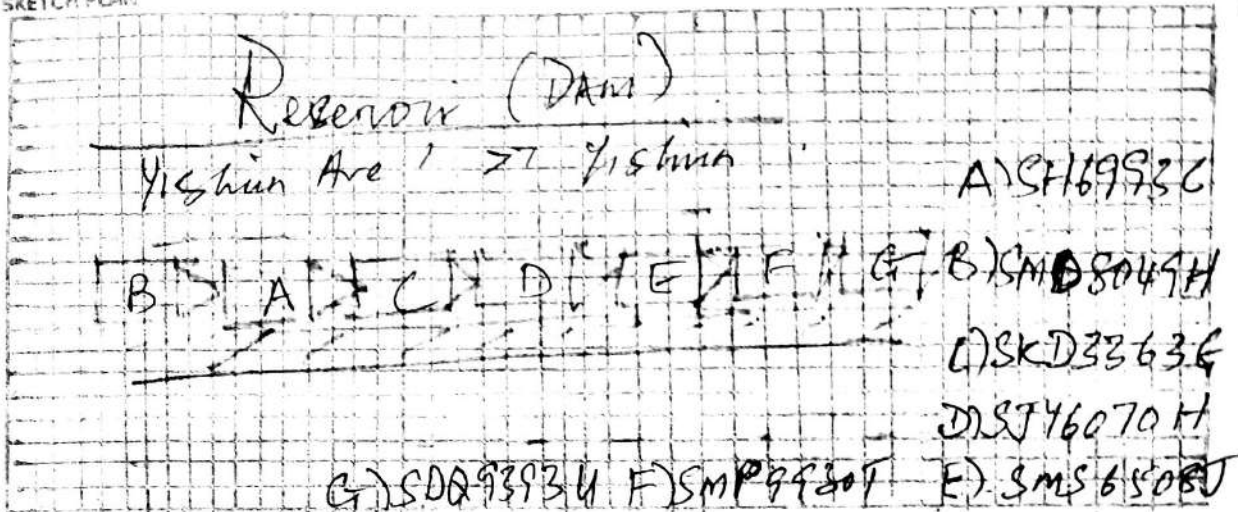 SKETCH PLAN
Reservoir (DAM)
Yishun Ave 1 >> Yishun
A) SH6993C
B A C D E F G B) SMD8049H
C) SKD3363E
D) SJY6070H
G) SDQ9393U F) SMP9930T E) SMS6508J